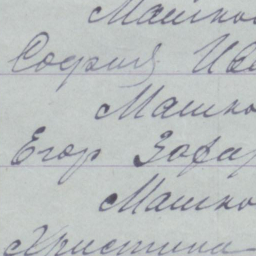 Машко
София Ива
Машко
Егор Заха
Машко
Христина